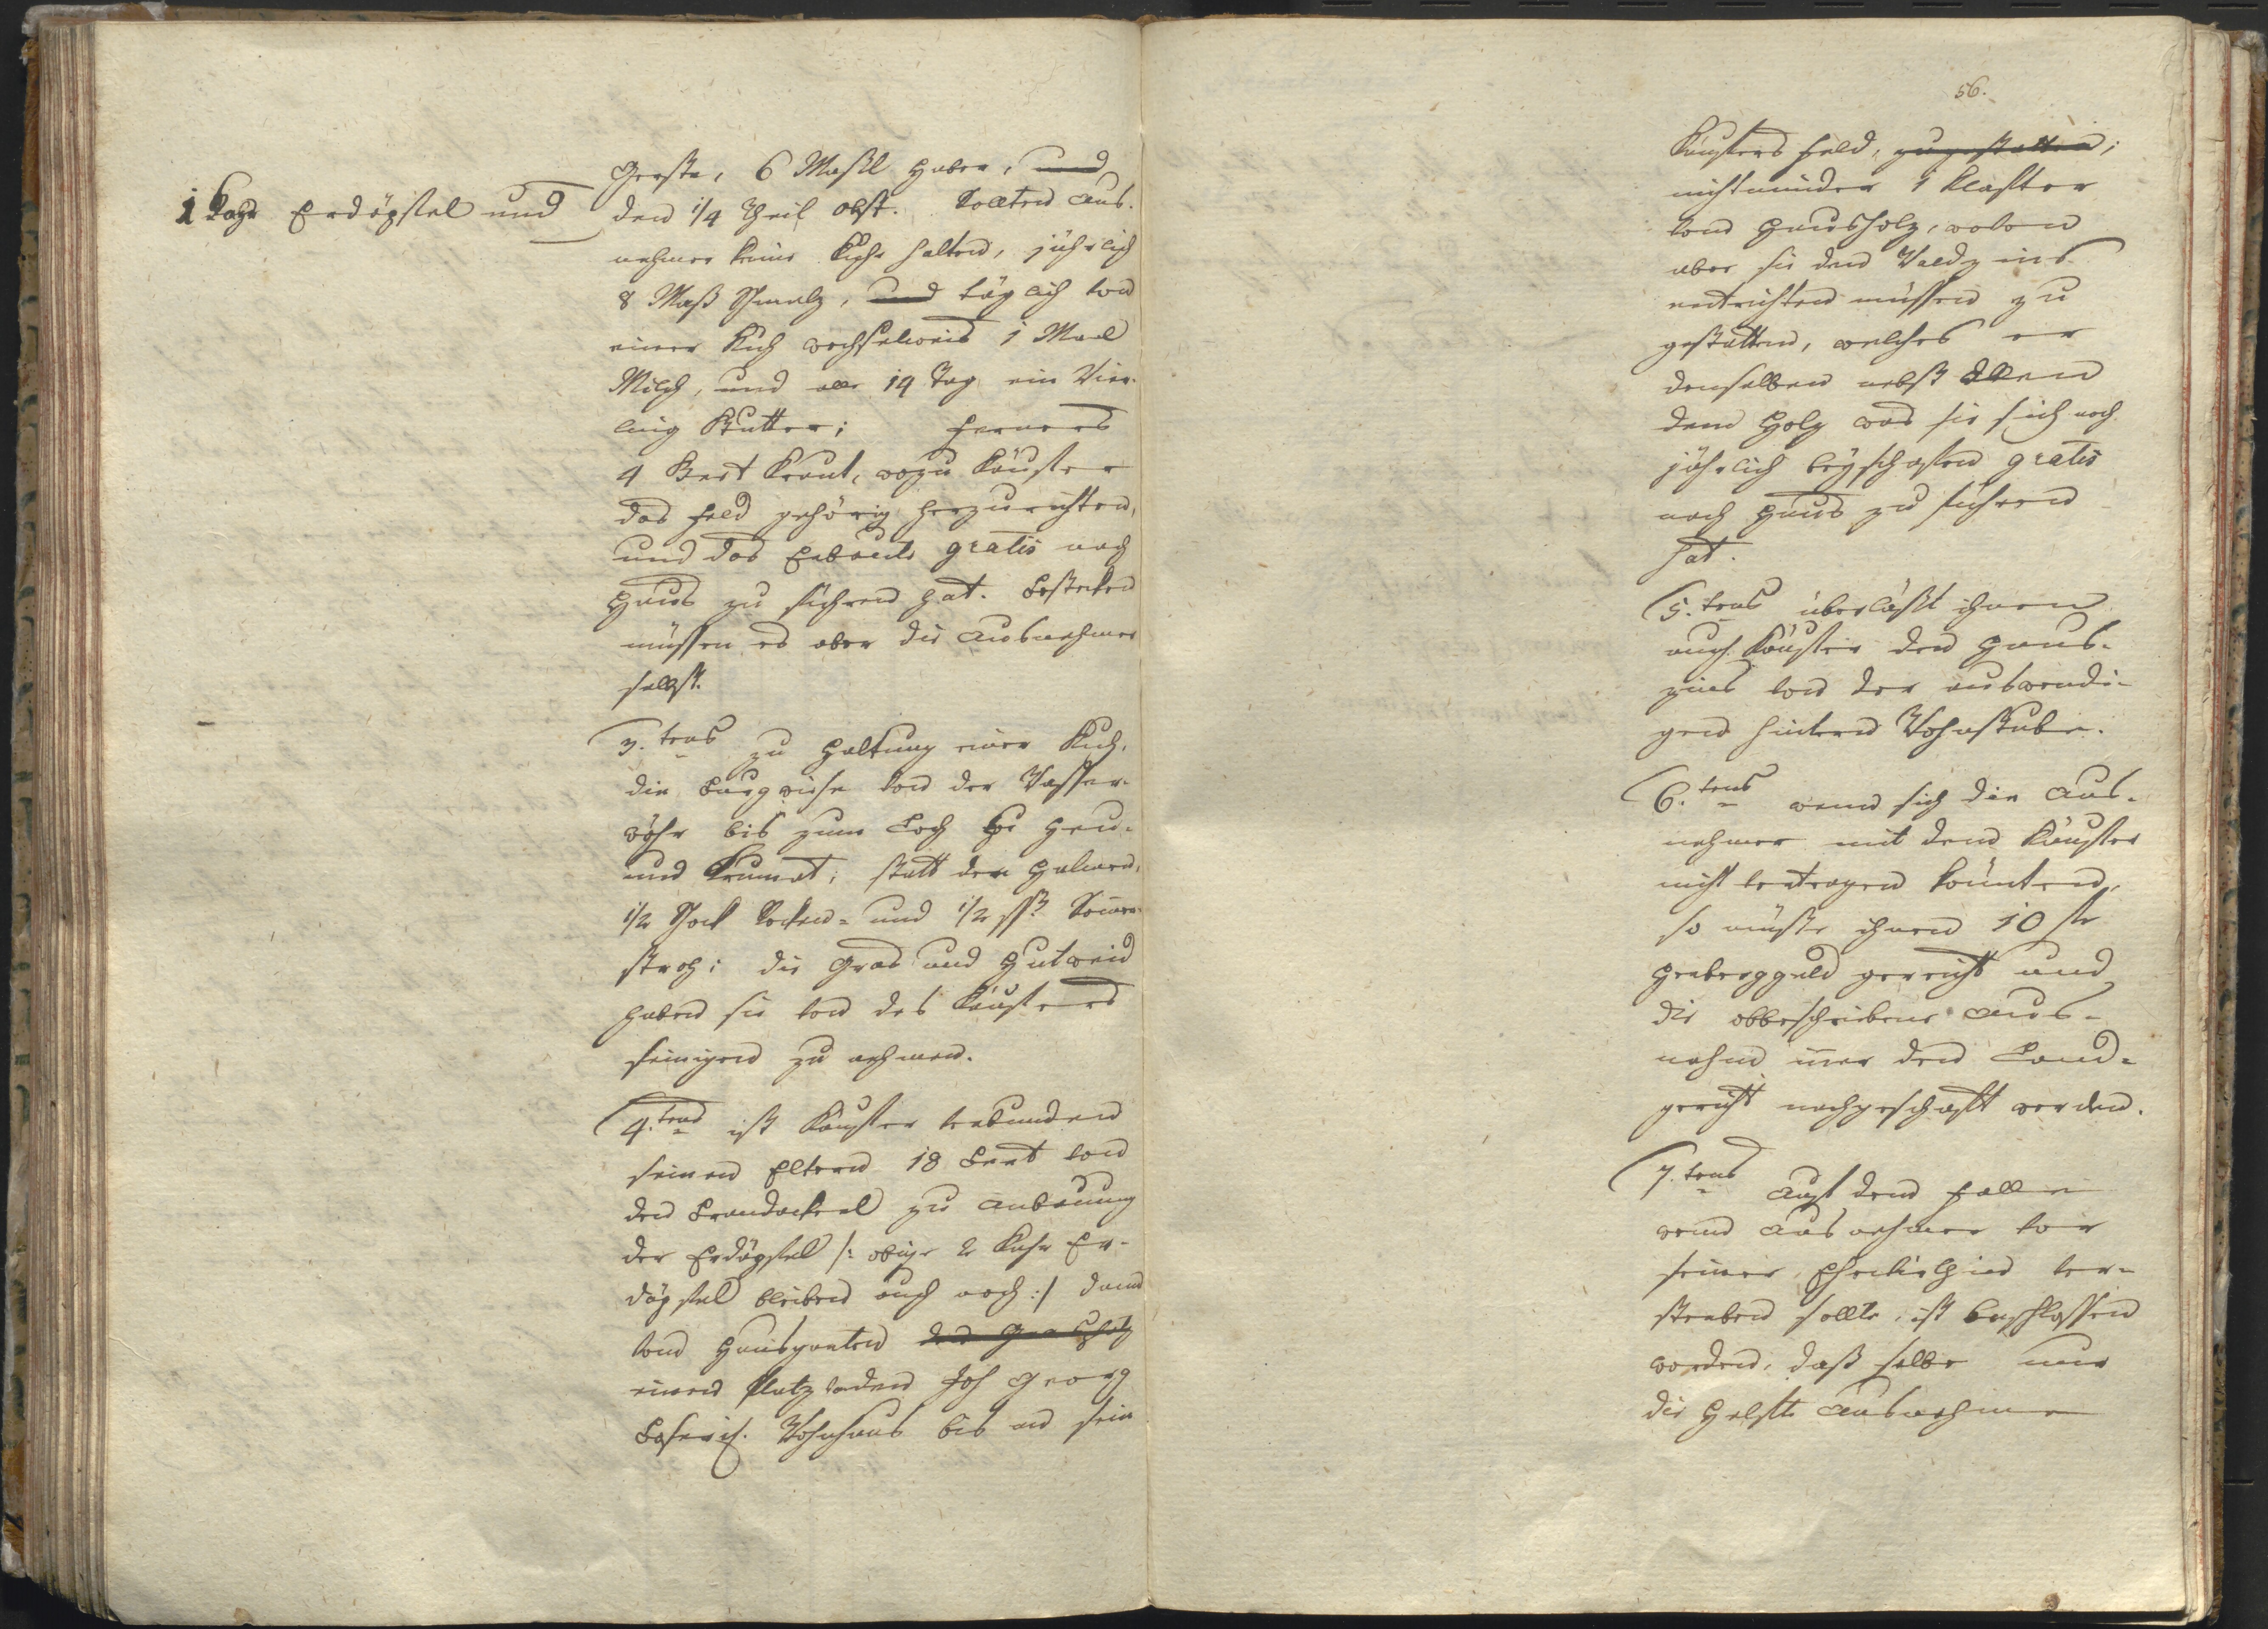 1 Kahr Erdöpfel und
Gerste, 6 Maßl Haber, und
den 1/4 Theil Obst. Sollten Aus-
nehmer keine Kuhe halten, jährlich
8 Maß Schmalz, und täglich von
einer Kuh wechselweis 1 Maal
Milch, und alle 14 Tag ein Vier-
ling Butter; ferners
4 Beet Kraut, wozu Käufer
das Feld gehörig herzurichten,
und das Erbaute gratis nach
Haus zu führen hat. Bestecken
müssen es aber die Ausnehmer
selbst.
3.tens zu Haltung einer Kuh,
die Burgwiese von der Wasser-
wöhr bis zum Loch zu Heu-
und Krumat; statt der Halmen,
1/2 Schock Rocken- und 1/2 ßk Som̅er-
stroh; die Gras und Hutweid
haben sie von des Käufers
seinigen zu nehmen.
4.tens ist Käufer verbunden
seinen Eltern 18 Beet von
den Brandackerl zu Anbauung
der Erdöpfel /: obige 2 Kahr Er-
döpfel bleiben auch noch :/ dann
vom Hausgarten
einen Platz von den Joh Georg
Wohnhaus bis an sein
56.
Käufers Feld, zugestatten;
nichtminder 1 Klafter
von Hausholz, wovon
aber sie den Waldzins
entrichten müssen zu
gestatten, welches er
denselben nebst allen
dem Holz was sie sich noch
jährlich beyschaffen gratis
nach Haus zu führen
hat.
5.tens überläßt ihnen
auch Käufer den Haus-
zins von der auswendi-
gen hintern Wohnstube.
6.tens wenn sich die Aus-
nehmer mit dem Käufer
nicht vertragen könnten,
so müßte ihnen 10 fr
Herberggeld gereicht und
die obbeschriebene Aus-
nahm in̅er den Land-
gericht nachgeschaft werden.
7.tens Auf dem Falle
wenn Ausnehmer vor
seiner Ehewirthin ver-
sterben sollte, ist beschlossen
worden, daß selbe nur
die Helfte Ausnahme